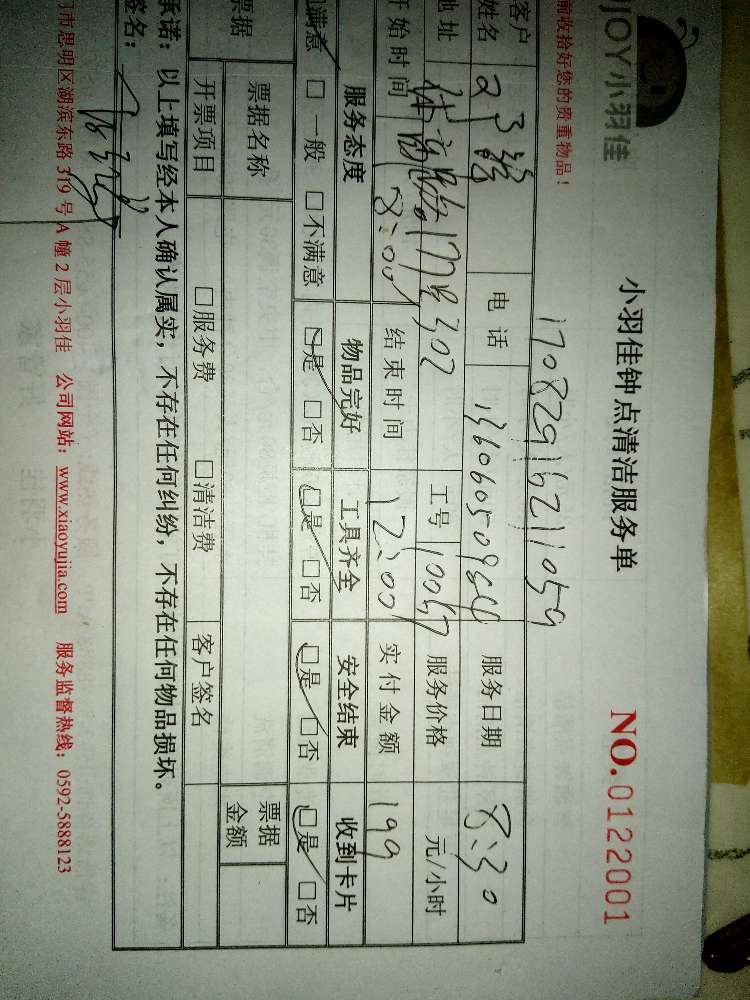 JOY小羽佳
小羽佳钟点清洁服务单
NO.0122001
前收拾好您的贵重物品！
17082916211059
客户姓名 电话 服务日期 8:30
地址 302 工号 10047 服务价格 元/小时
开始时间 8:00 结束时间 12:00 实付金额 199
服务态度 物品完好 工具齐全 安全结束 收到卡片
满意 □一般 □不满意 □是 □否 □是 □否 □是 □否 □是 □否
票据 票据名称 票据金额
开票项目 □服务费 □清洁费 客户签名
承诺：以上填写经本人确认属实，不存在任何纠纷，不存在任何物品损坏。
签名：
门市思明区湖滨东路319号A幢2层小羽佳 公司网站：www.xiaoyujia.com 服务监督热线：0592-5888123